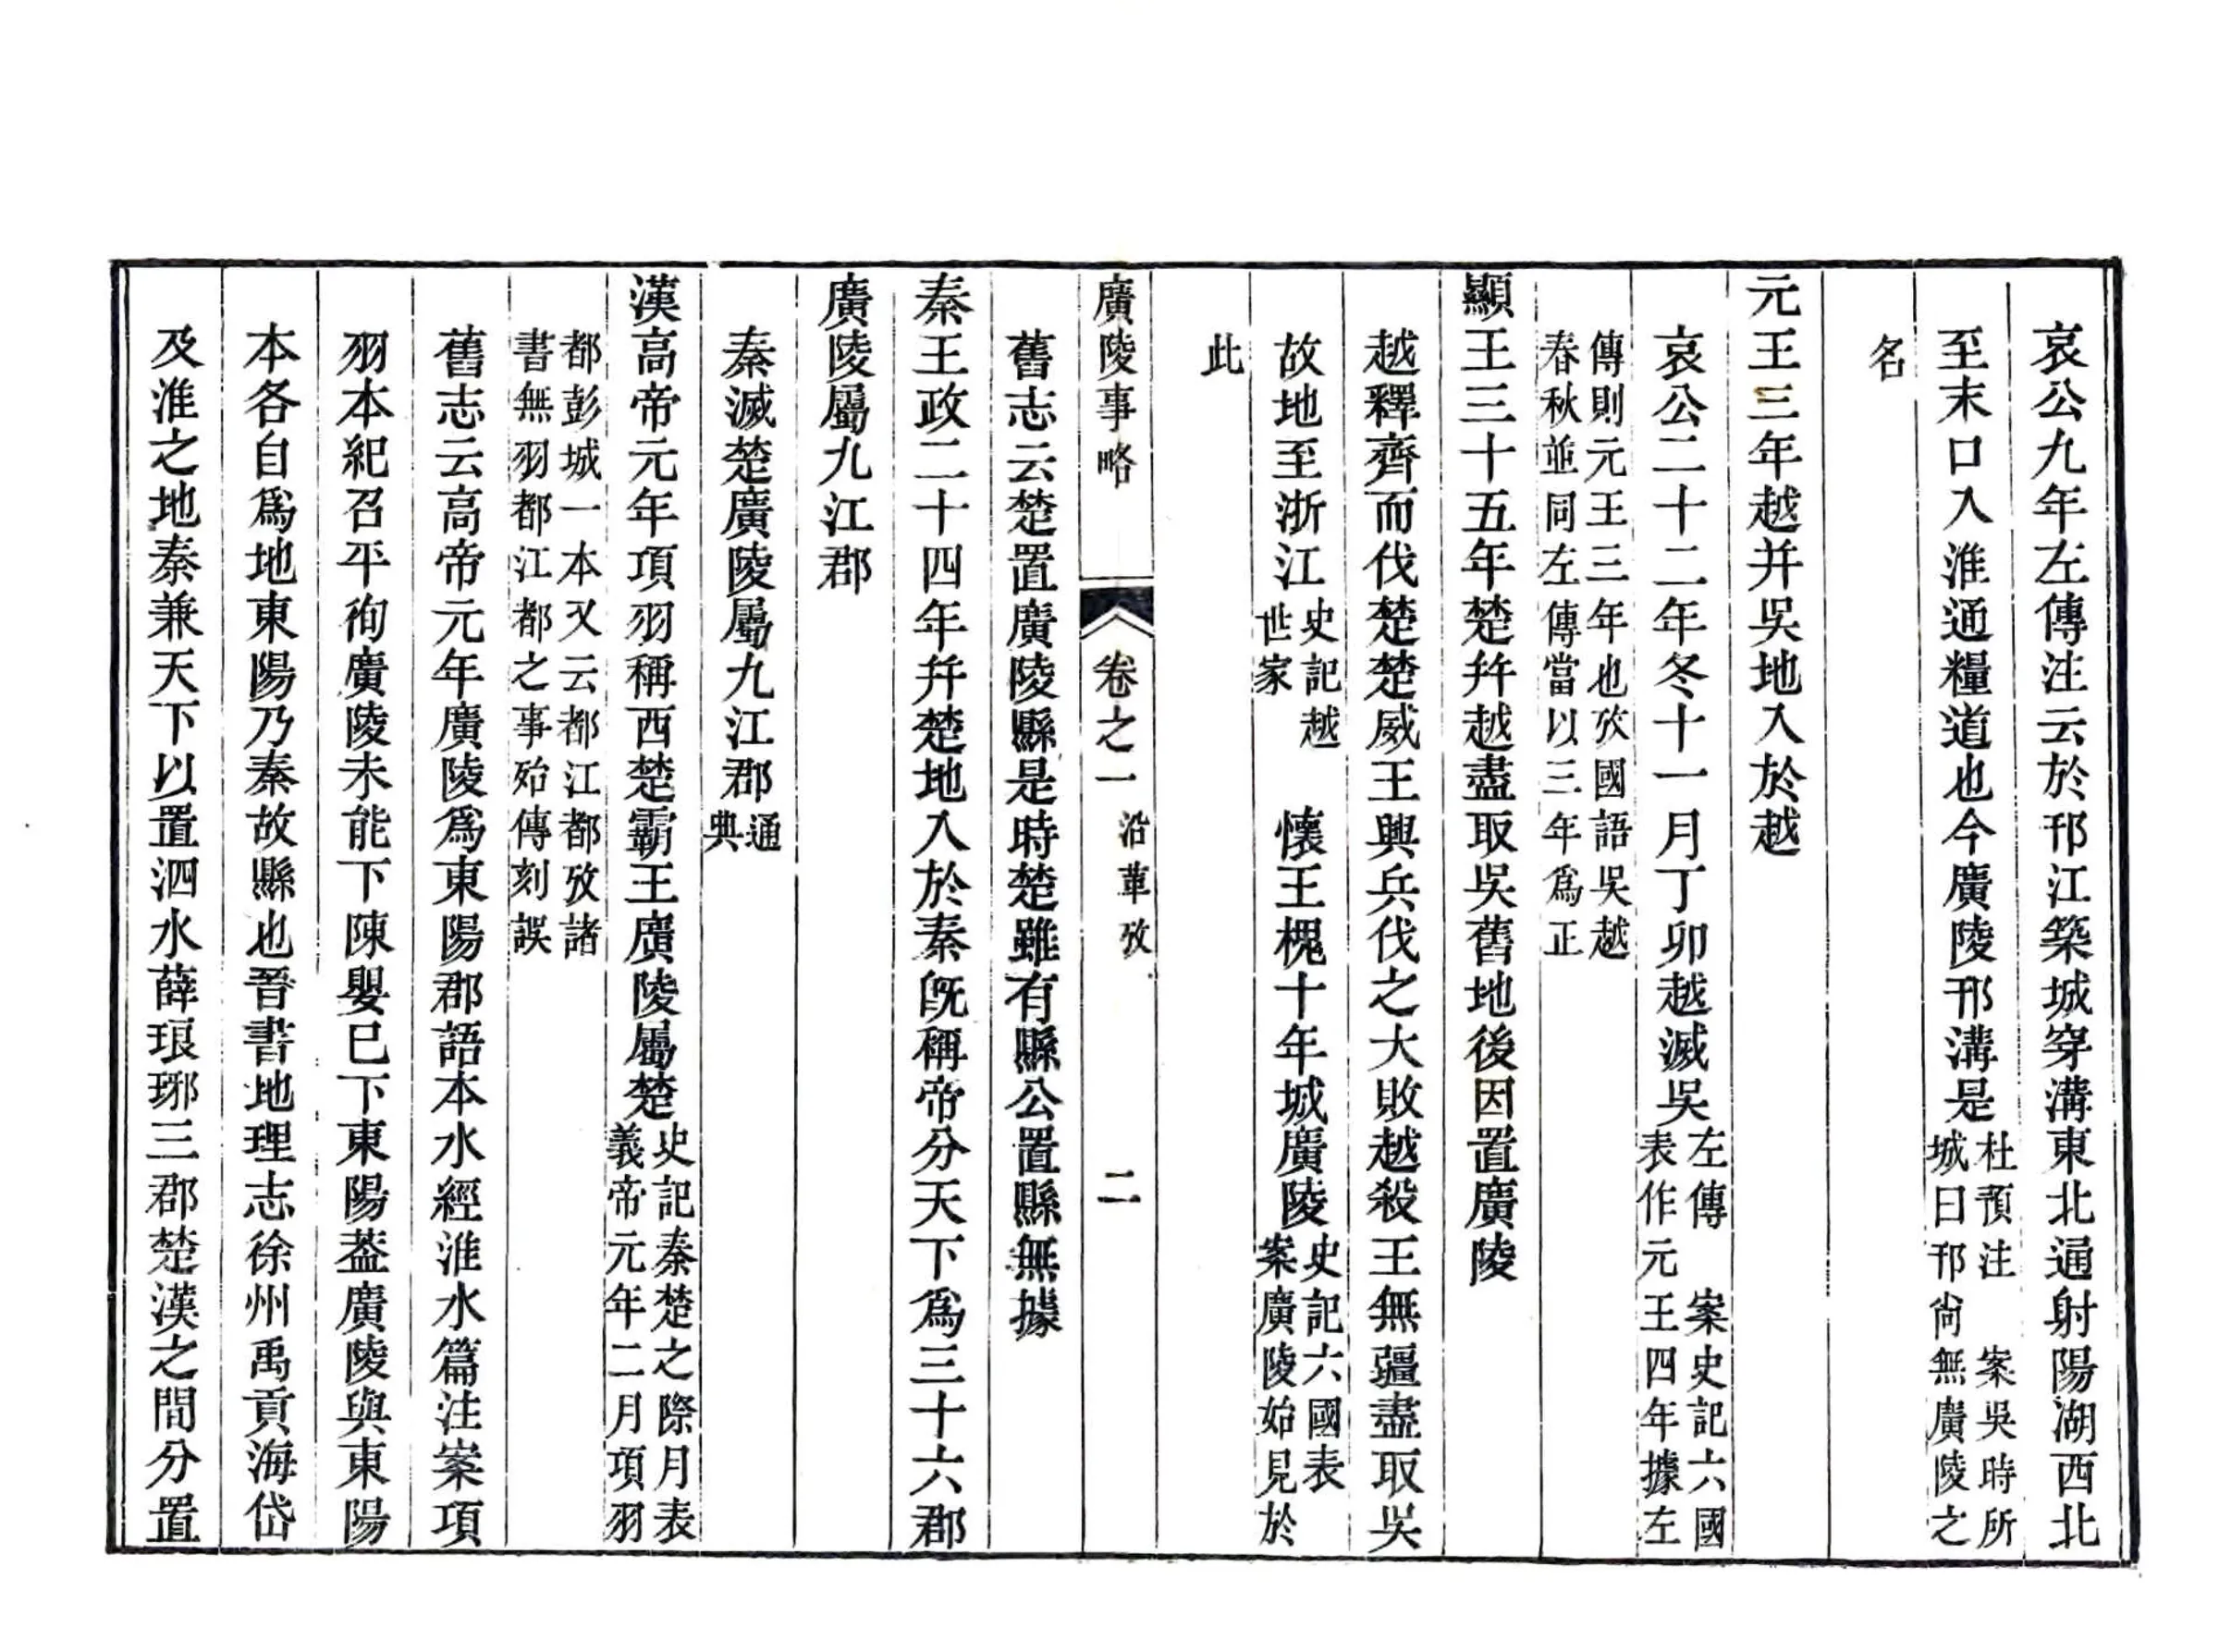 哀公九年左傳注云於邗江築城穿溝東北通射陽湖西北
至末口入淮通糧道也今廣陵邗溝是杜預注 案吳時所城曰邗尙無廣陵之
名
元王三年越并吳地入於越
哀公二十二年冬十一月丁卯越滅吳左傳 案史記六國表作元王四年據左
傳則元王三年也攷國語吳越春秋並同左傳當以三年爲正
顯王三十五年楚幷越盡取吳舊地後因置廣陵
越釋齊而伐楚楚威王興兵伐之大敗越殺王無疆盡取吳
故地至浙江史記越世家 懷王槐十年城廣陵史記六國表案廣陵始見於
此
廣陵事略 卷之一 沿革攷 二
舊志云楚置廣陵縣是時楚雖有縣公置縣無據
秦王政二十四年幷楚地入於秦旣稱帝分天下爲三十六郡
廣陵屬九江郡
秦滅楚廣陵屬九江郡通典
漢高帝元年項羽稱西楚霸王廣陵屬楚史記秦楚之際月表義帝元年二月項羽
都彭城一本又云都江都攷諸書無羽都江都之事殆傳刻誤
舊志云高帝元年廣陵爲東陽郡語本水經淮水篇注案項
羽本紀召平徇廣陵未能下陳嬰已下東陽葢廣陵與東陽
本各自爲地東陽乃秦故縣也晉書地理志徐州禹貢海岱
及淮之地秦兼天下以置泗水薛琅琊三郡楚漢之間分置